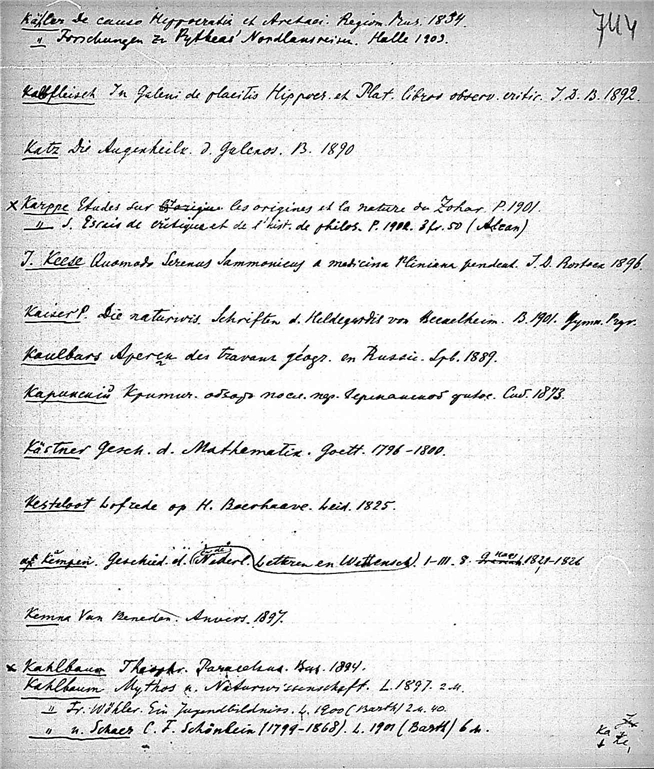 744
Kähler De causo Hippocratis et Aretaei. Regiom. Prus. 1834
" Forschungen zu Pytheas' Nordlandsreisen. Halle 1903.
Kalbfleisch In Galeni de placitis Hippocr. et Plat. libros observ. critic. I. D. B. 1892.
Katz Die Augenheilk. d. Galenos. B. 1890
x Karppe Etudes sur les origines et la nature du Zohar. P. 1901.
" S. Essais de critique et de l'hist. de philos. P. 1902. 3 fr. 50 (Alcan)
J. Keese Quomodo Serenus Sammonicus a medicina Pliniana pendeat. I. D. Rostock 1896.
Kaiser P. Die naturwis. Schriften d. Hildegardis von B. 1901. Gymn. Pgr.
Kaulbars Aperçu des travaux géogr. en Russie. Spb. 1889.
Каринский Критич. обзор посл. пер. Германской филос. Спб. 1873.
Kästner Gesch. d. Mathematik. Goett. 1796-1800.
Kesteloot Lofrede op H. Boerhaave. Leid. 1825.
Kempen. Geschied. d. Nederl. Letteren en Wettensch. I-III. 8. 1821-1826
Kemna Van Beneden. Anvers. 1897.
x Kahlbaum Theophr. Paracelsus. Bas. 1894.
Kahlbaum Mythos u. Naturwissenschaft. L. 1897. 2 M.
" Fr. Wöhler. Ein Jugendbildniss. L. 1900 (Barth) 2 M. 40.
" u. Schaer C. F. Schönbein (1799-1868). L. 1901 (Barth) 6 M.
Ka Ke